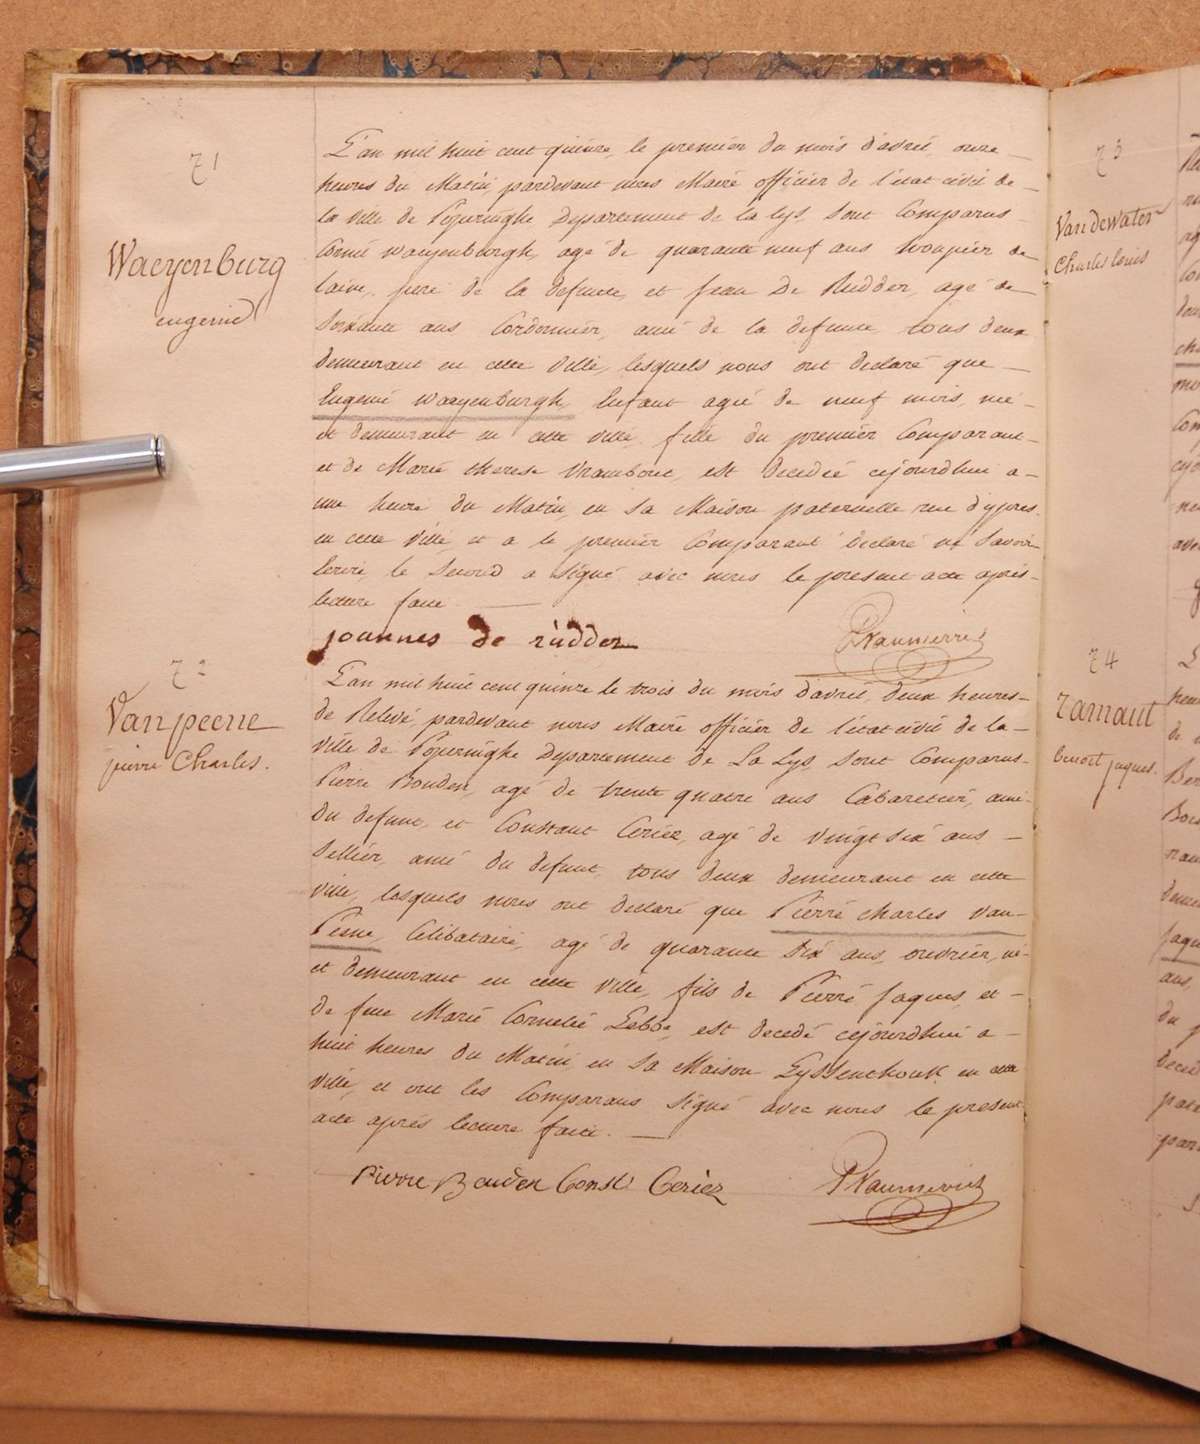 71
Waeyenburg
eugenie
L'an mil huit cent quinze, le premier du mois d'avril, onze
heures du Matin, pardevant nous Maire officier de l'état civil de
la ville de Poperinghe Departement de la Lys, sont Comparus
Corneil waeyenburgh, agé de quarante neuf ans troupier de
laine, pere de la defunte, et Jean De Rudder, agé de
Soixante ans Cordonnier, ami de la defunte tous deux
demeurant en cette ville, lesquels nous ont declaré que
Eugenie waeyenburgh, Enfant agée de neuf mois, née
et demeurant en cette ville, fille du premier Comparant
et de Marie therese vrambout, est decedée cejourdhui a
une heure du Matin, en sa Maison paternelle rue d'ypres
en cette ville, et a le premier Comparant declaré ne savoir
Ecrire, le second a signé avec nous le present acte après
lecture faite
joannes de rudder
72
Van peene
pierre Charles.
L'an mil huit cent quinze le trois du mois d'avril, deux heures
de Relevé, pardevant nous Maire officier de l'état civil de la
ville de Poperinghe Departement de La Lys, sont Comparus
Pierre Bouden, agé de trente quatre ans Cabaretier, ami
du defunt, et Constant Cériez, agé de vingt six ans
Sellier, ami du defunt, tous deux demeurant en cette
ville, lesquels nous ont declaré que Pierre Charles van
Peene, Celibataire, agé de quarante six ans, ouvrier, né
et demeurant en cette ville, fils de Pierre Jaques, et
de feue Marie Cornelie Lebbe, est decedé cejourdhui a
huit heures du Matin en sa Maison en cette
ville, et ont les Comparans signé avec nous le present
acte après lecture faite.
Pierre Bouden Const Ceriez
73
Vandewater
Charles Louis
74
Tamaut
benoit jaques.